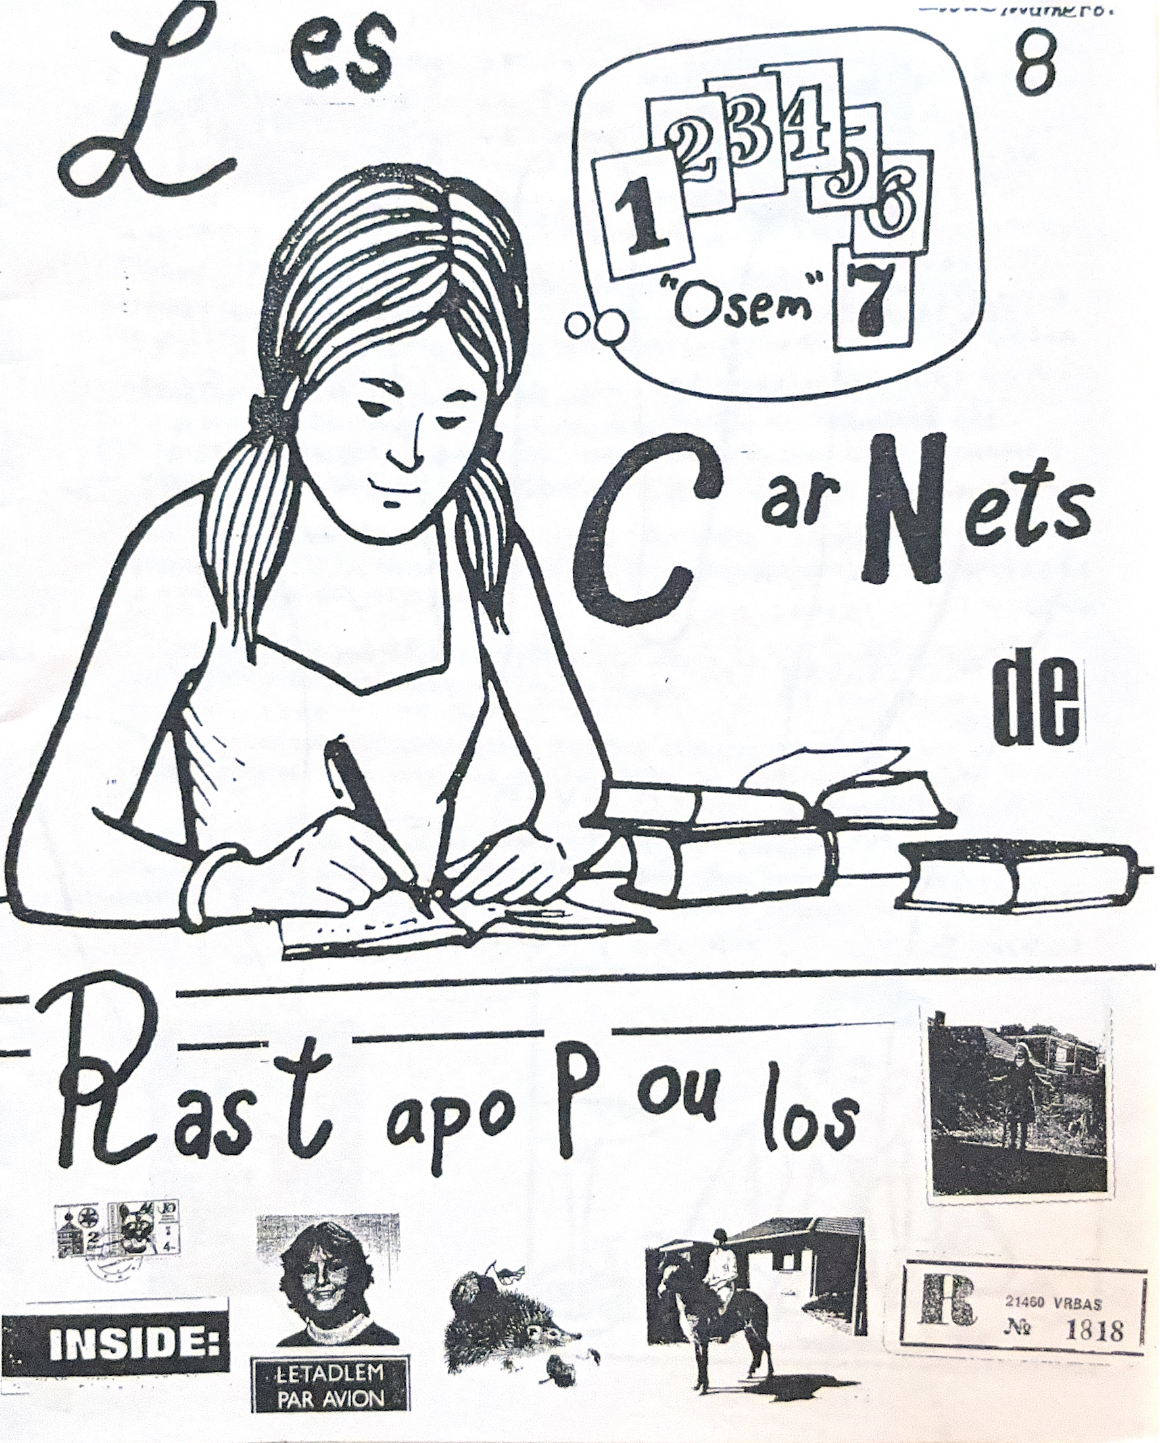 Les
8
1 2 3 4 5 6 7
"Osem"
CarNets
de
RastapoPoulos
2 4-
INSIDE:
LETADLEM
PAR AVION
R 21460 VRBAS
№ 1818